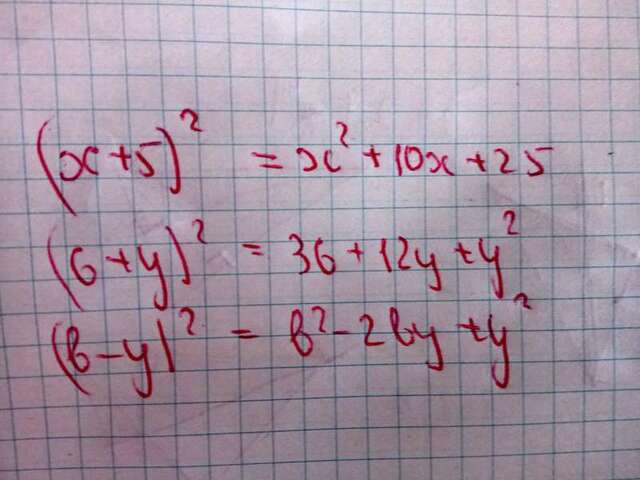 (x+5)² = x² + 10x + 25
(6+y)² = 36 + 12y + y²
(b-y)² = b² - 2by + y²